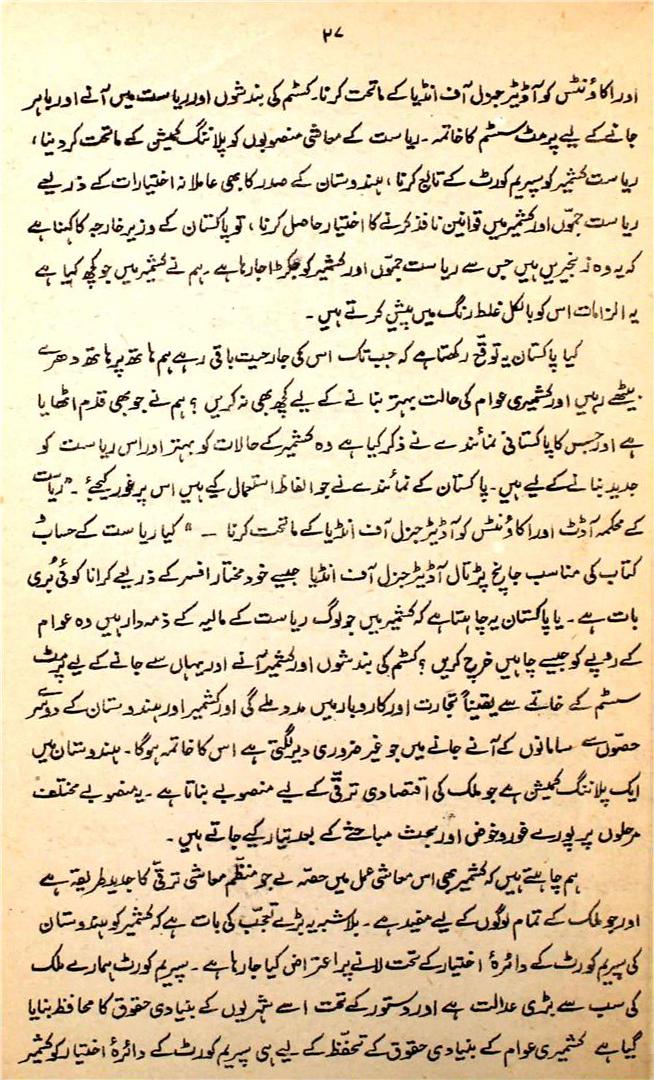 ۲۷
اور اکاؤنٹس کو آڈیٹر جنرل آف انڈیا کے ماتحت کرنا۔ کسٹم کی بندشوں اور ریاست میں آنے اور باہر
جانے کے لیے پرمٹ سسٹم کا خاتمہ۔ ریاست کے معاشی منصوبوں کو پلاننگ کمیشن کے ماتحت کر دینا،
ریاست کشمیر کو سپریم کورٹ کے تابع کرنا، ہندوستان کے صدر کا بھی عاملانہ اختیارات کے ذریعے
ریاست جموّں اور کشمیر میں قوانین نافذ کرنے کا اختیار حاصل کرنا، تو پاکستان کے وزیر خارجہ کا کہنا ہے
کہ یہ وہ زنجیریں ہیں جس سے ریاست جموّں اور کشمیر کو جکڑا جا رہا ہے۔ ہم نے کشمیر میں جو کچھ کیا ہے
یہ الزامات اس کو بالکل غلط رنگ میں پیش کرتے ہیں۔
کیا پاکستان یہ توقع رکھتا ہے کہ جب تک اس کی جارحیت باقی رہے ہم ہاتھ پر ہاتھ دھرے
بیٹھے رہیں اور کشمیری عوام کی حالت بہتر بنانے کے لیے کچھ بھی نہ کریں؟ ہم نے جو بھی قدم اٹھایا
ہے اور جس کا پاکستانی نمائندے نے ذکر کیا ہے وہ کشمیر کے حالات کو بہتر اور اس ریاست کو
جدید بنانے کے لیے ہیں۔ پاکستان کے نمائندے نے جو الفاظ استعمال کیے ہیں اس پر غور کیجئے۔ "ریاست
کے محکمہ آڈٹ اور اکاؤنٹس کو آڈیٹر جنرل آف انڈیا کے ماتحت کرنا ــ" کیا ریاست کے حساب
کتاب کی مناسب جانچ پڑتال آڈیٹر جنرل آف انڈیا جیسے خود مختار افسر کے ذریعے کرانا کوئی بُری
بات ہے۔ یا پاکستان یہ چاہتا ہے کہ کشمیر میں جو لوگ ریاست کے مالیہ کے ذمہ دار ہیں وہ عوام
کے روپے کو جیسے چاہیں خرچ کریں؟ کسٹم کی بندشوں اور کشمیر آنے اور یہاں سے جانے کے لیے پرمٹ
سسٹم کے خاتمے سے یقیناً تجارت اور کاروبار میں مدد ملے گی اور کشمیر اور ہندوستان کے دوسرے
حصّوں سے سامانوں کے آنے جانے میں جو غیر ضروری دیر لگتی ہے اس کا خاتمہ ہوگا۔ ہندوستان میں
ایک پلاننگ کمیشن ہے جو ملک کی اقتصادی ترقّی کے لیے منصوبے بناتا ہے۔ یہ منصوبے مختلف
مرحلوں پر پورے غور و خوض اور بحث مباحثے کے بعد تیار کیے جاتے ہیں۔
ہم چاہتے ہیں کہ کشمیر بھی اس معاشی عمل میں حصّہ لے جو منظّم معاشی ترقّی کا جدید طریقہ ہے
اور جو ملک کے تمام لوگوں کے لیے مفید ہے۔ بلاشبہ یہ بڑے تعجّب کی بات ہے کہ کشمیر کو ہندوستان
کی سپریم کورٹ کے دائرۂ اختیار کے تحت لانے پر اعتراض کیا جا رہا ہے۔ سپریم کورٹ ہمارے ملک
کی سب سے بڑی عدالت ہے اور دستور کے تحت اسے شہریوں کے بنیادی حقوق کا محافظ بنایا
گیا ہے کشمیری عوام کے بنیادی حقوق کے تحفّظ کے لیے ہی سپریم کورٹ کے دائرۂ اختیار کو کشمیر